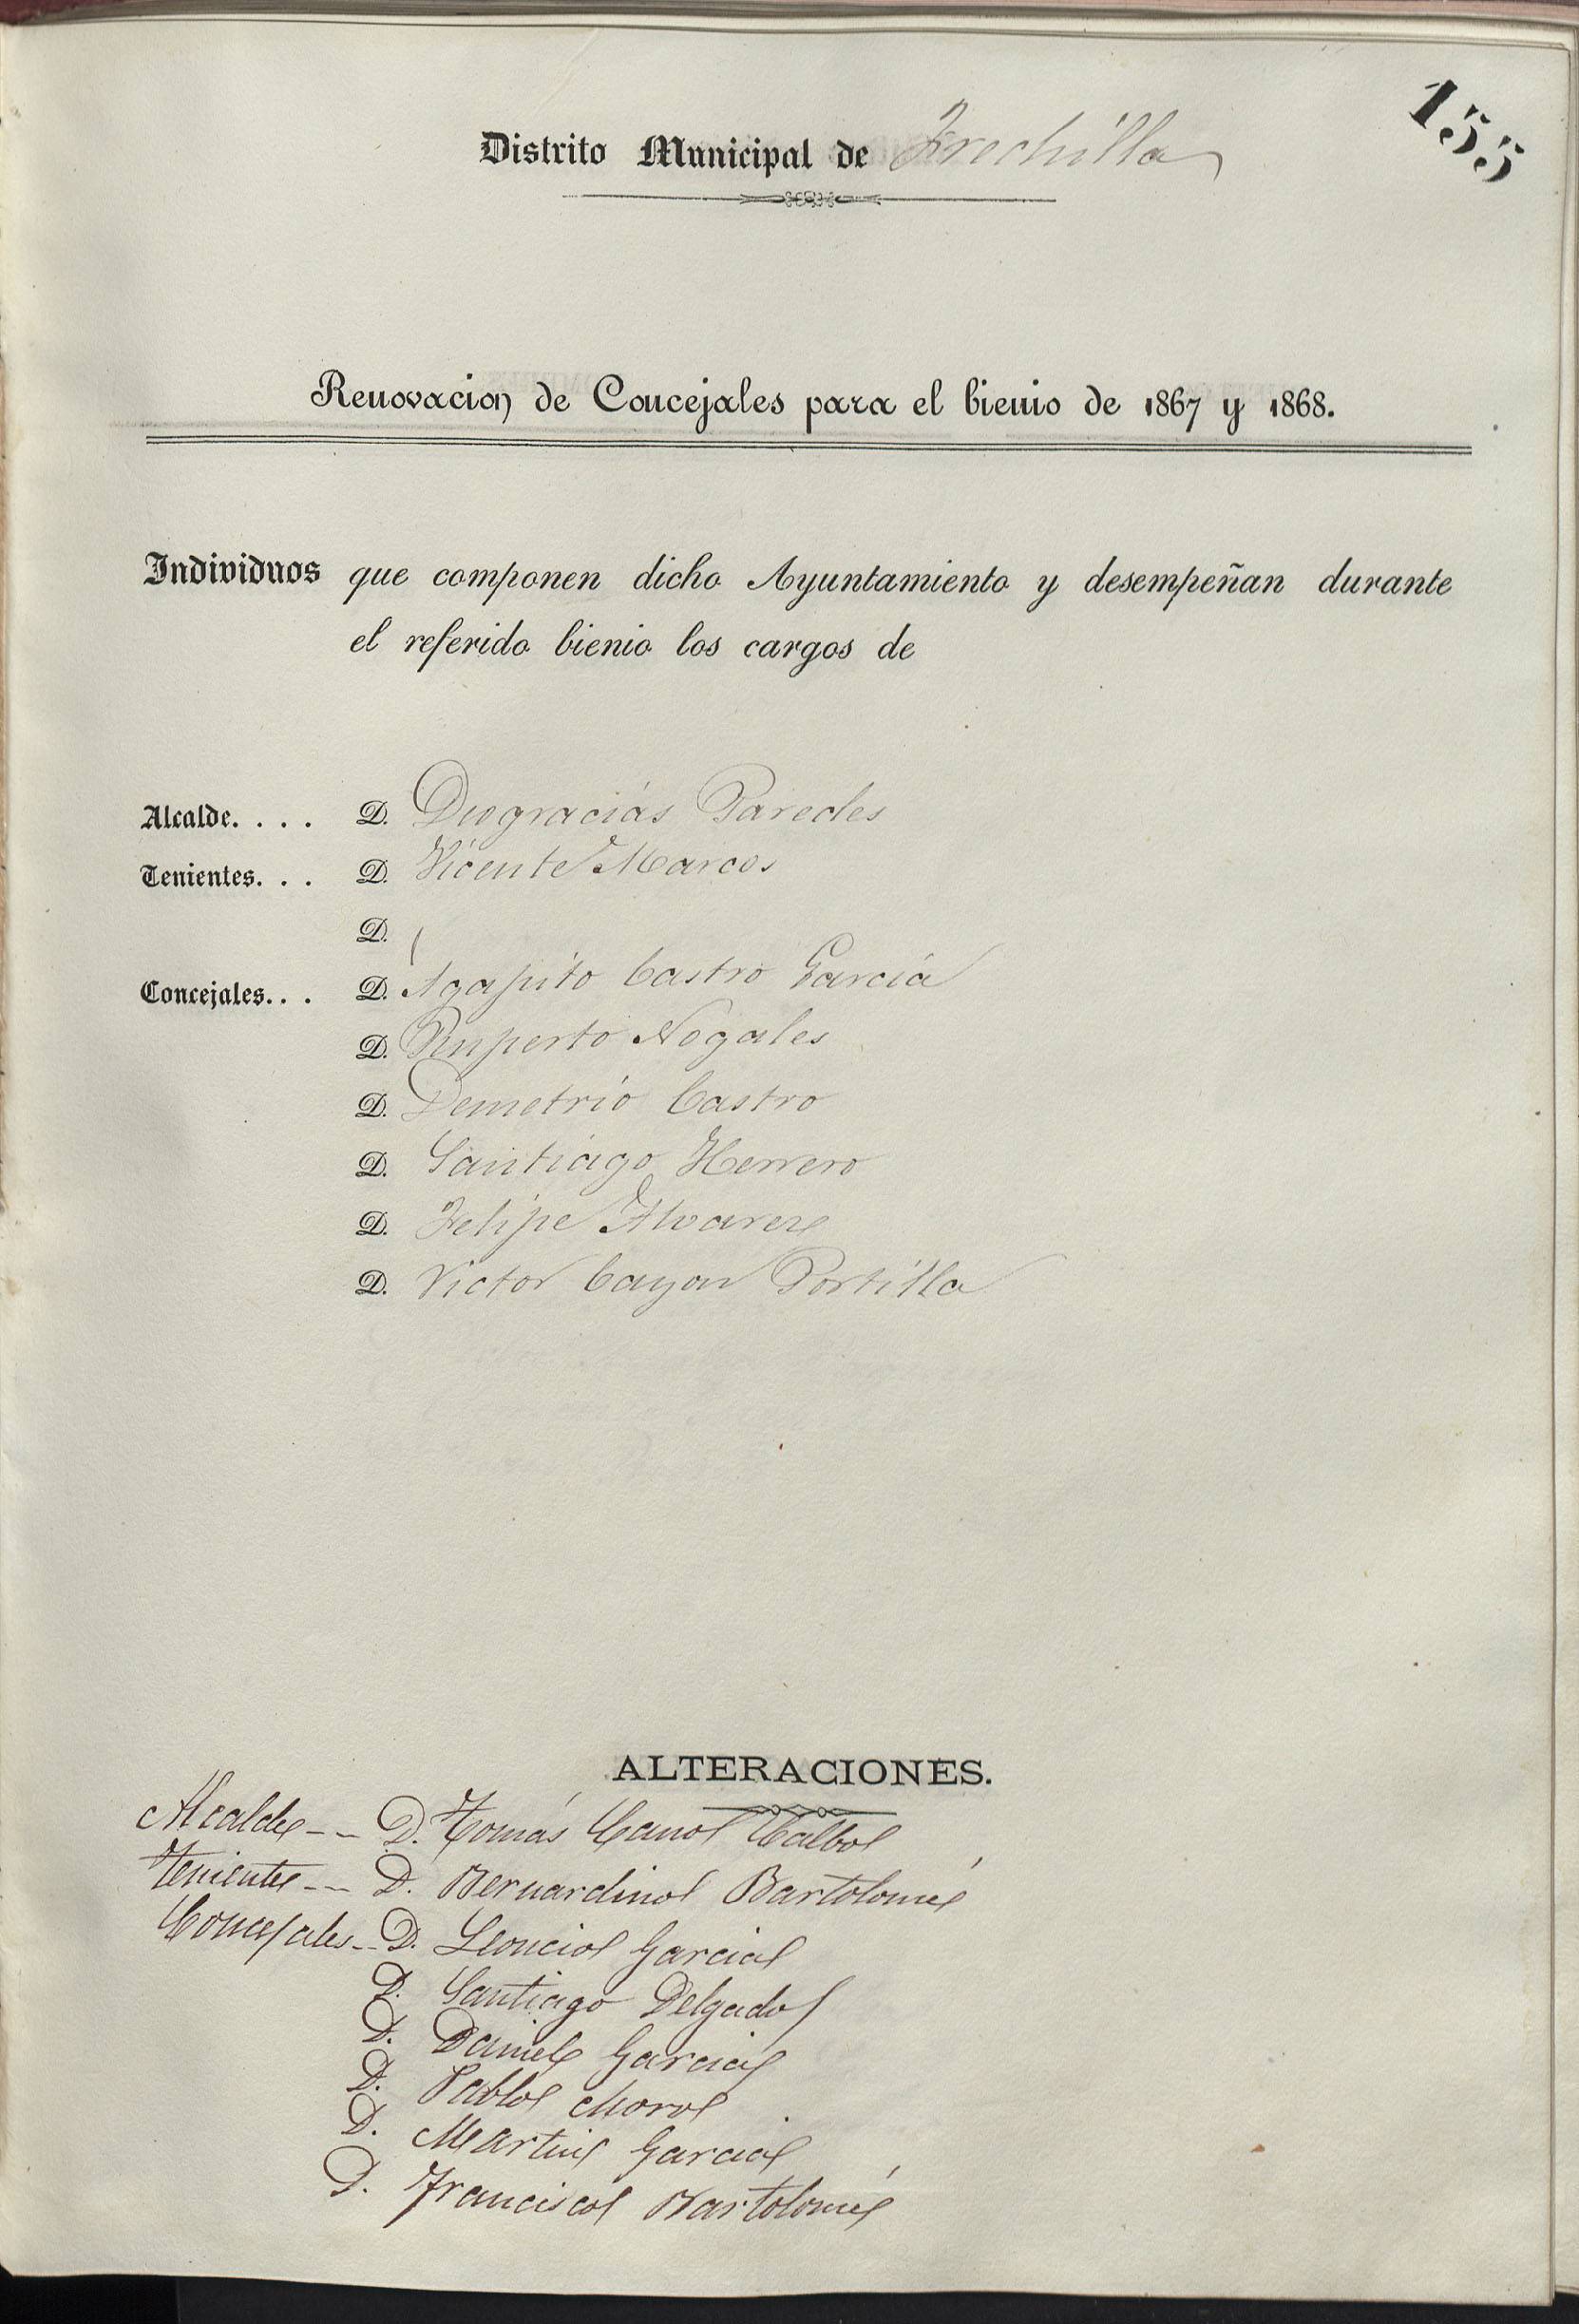 155
Distrito Municipal de Frechilla
Renovacion de Concejales para el bienio de 1867 y 1868.
Individuos que componen dicho Ayuntamiento y desempeñan durante
el referido bienio los cargos de
Alcalde. . . . D. Diogracias Paredes
Tenientes. . . D. Vicente Marcos
D.
Concejales. . . D. Agapito Castro García
D. Ruperto Nogales
D. Demetrio Castro
D. Santiago Herrero
D. Felipe Alvarez
D. Victor Cayon Portilla
ALTERACIONES.
Alcalde -- D. Tomás Cano
Teniente -- D. Bernardino Bartolomé
Concejales -- D. Leoncio Garcia
D. Santiago Delgado
D. Daniel Garcia
D. Pablo Moro
D. Martin Garcia
D. Francisco Bartolomé